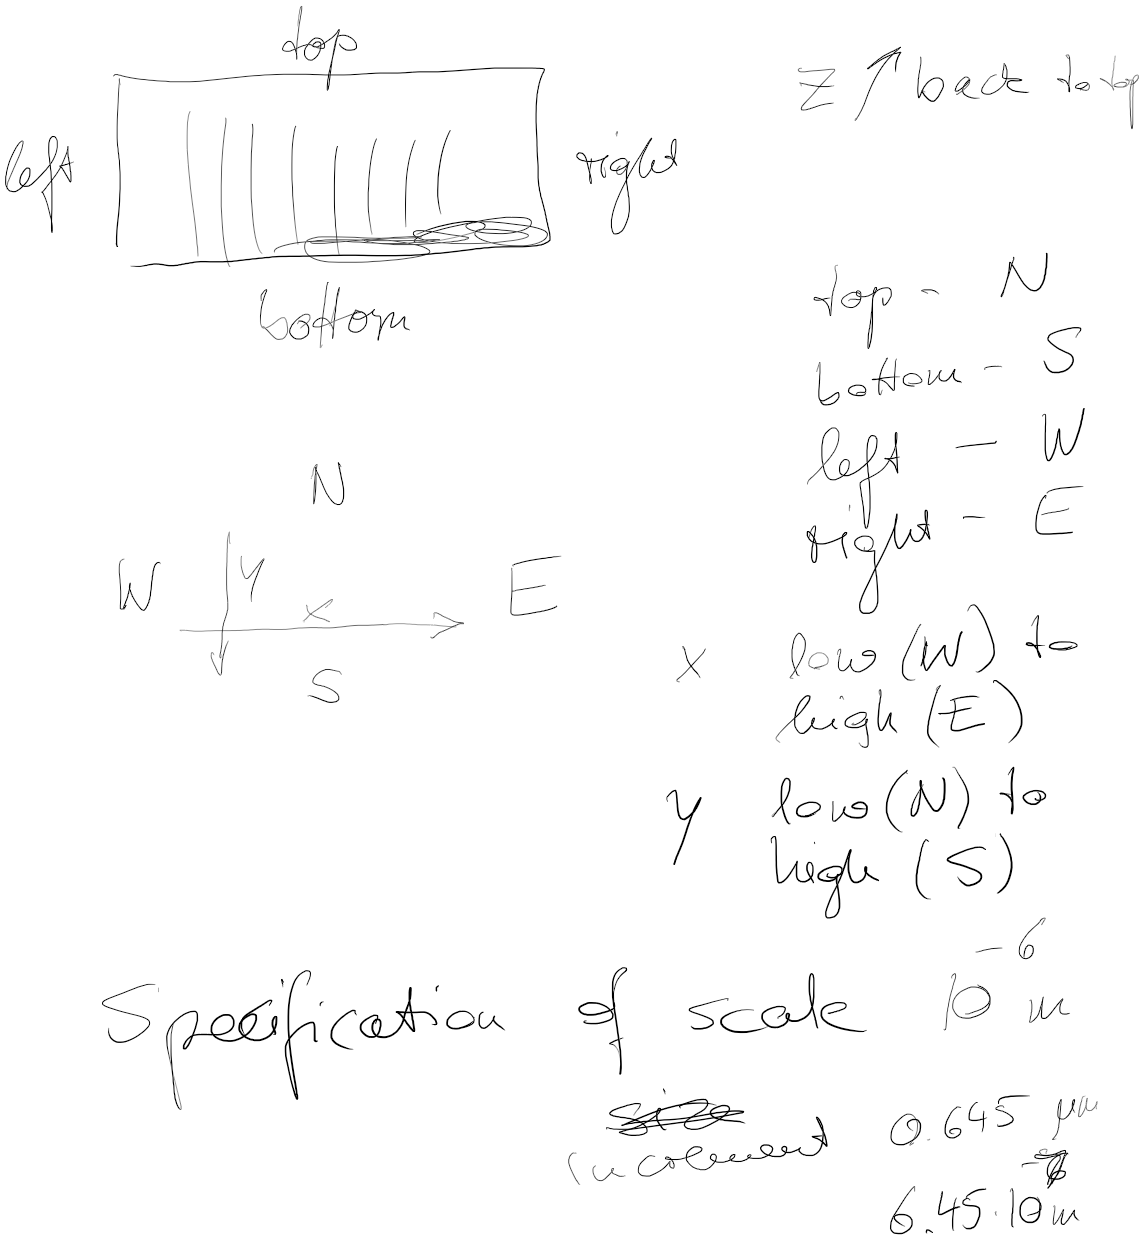 top
Z ↑ back to top
left
right
bottom
top - N
bottom - S
left - W
right - E
N
W
y
x
E
S
x low (W) to
high (E)
y low (N) to
high (S)
Specification of scale 10⁻⁶ m
size
increment 0.645 μm
6.45·10 m